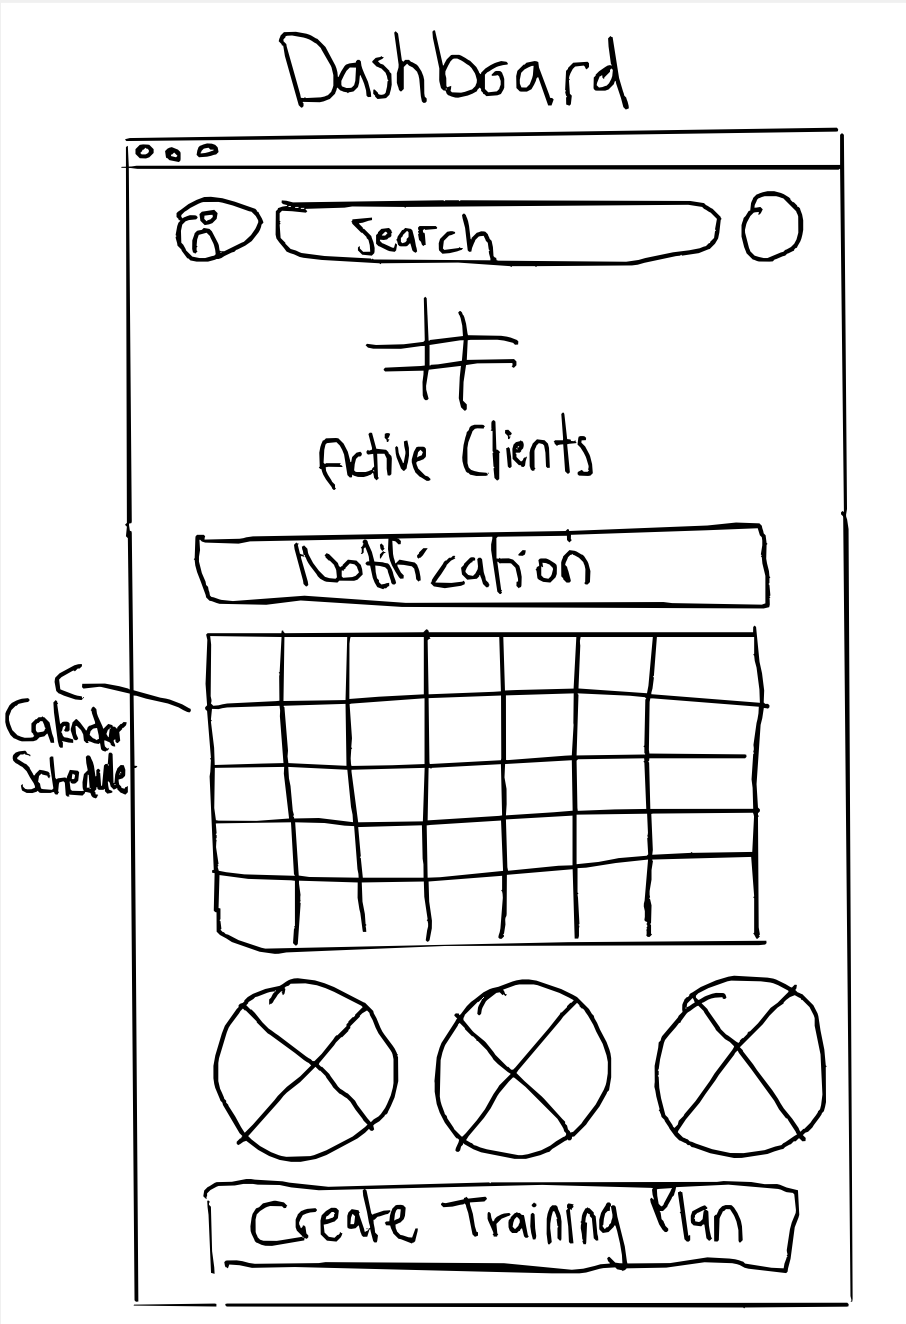 Dashboard
Search
#
Active Clients
Notification
Calendar
Schedule
Create Training Plan